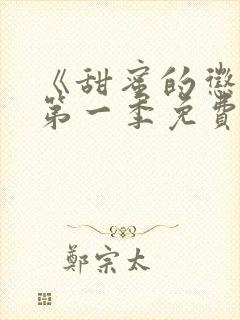 《甜蜜的惩
第一季免費
鄭宗太